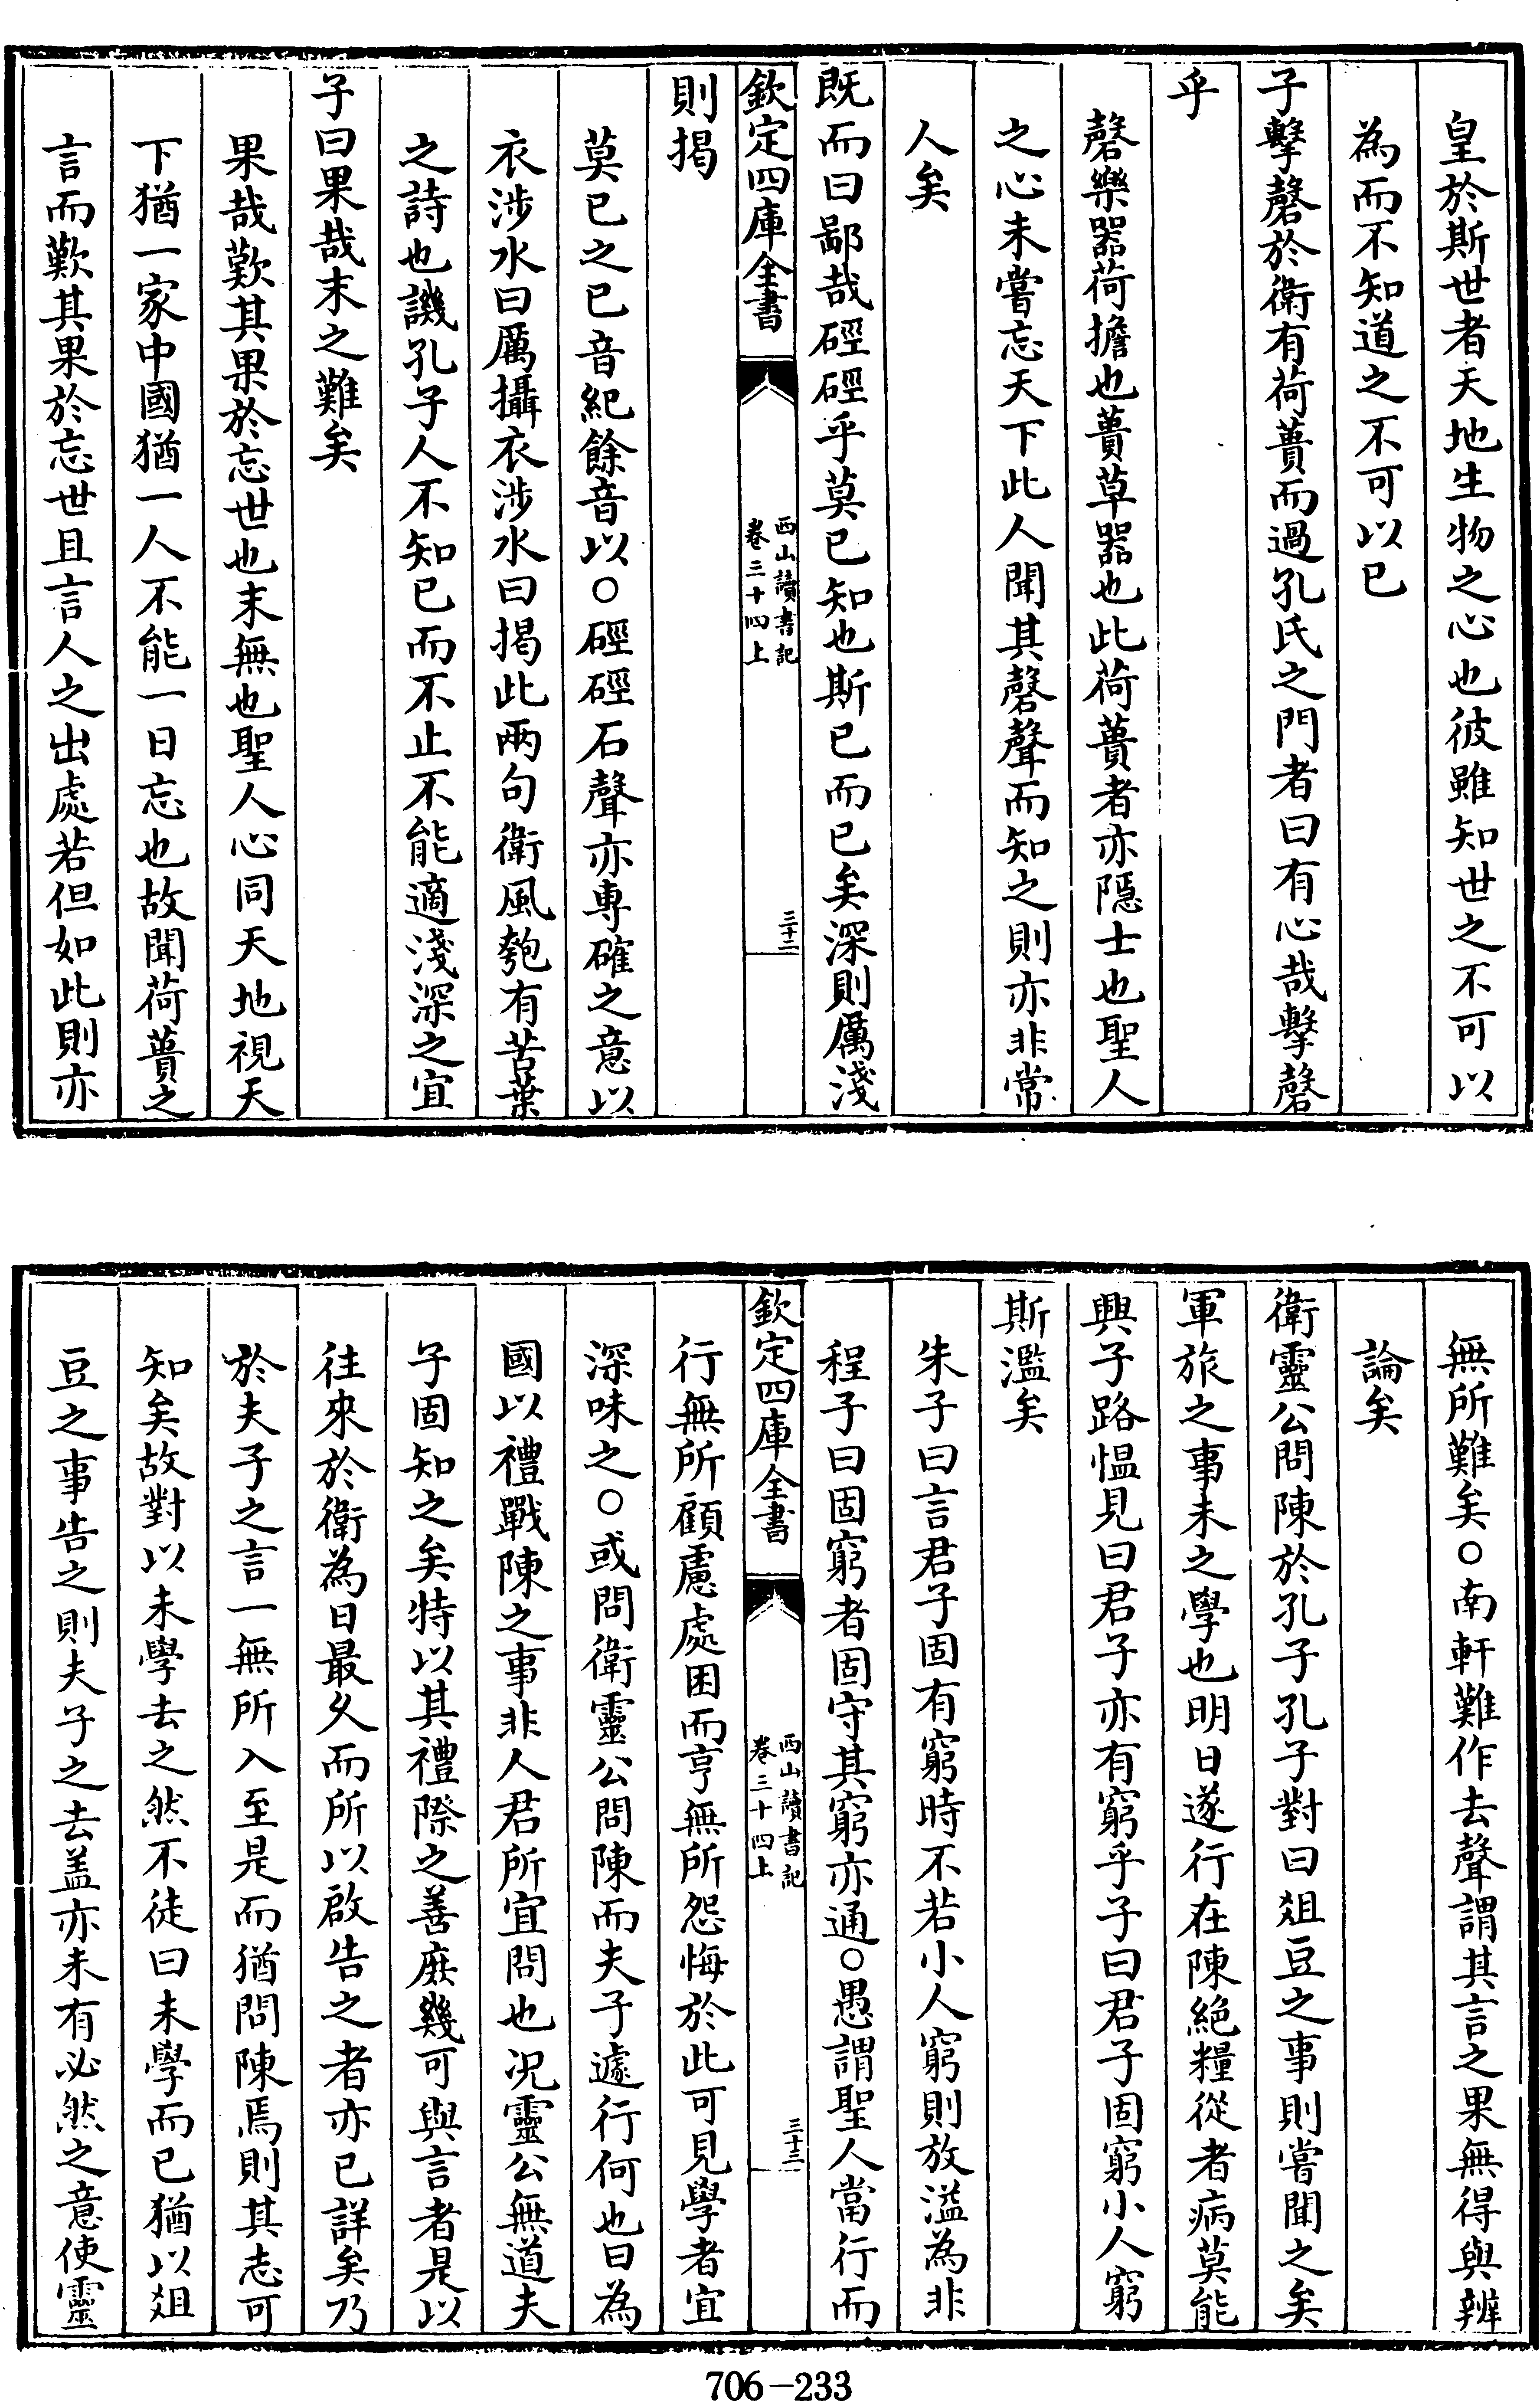 皇於斯世者天地生物之心也彼雖知世之不可以
為而不知道之不可以已
子擊磬於衛有荷蕢而過孔氏之門者曰有心哉擊磬
乎
磬樂器荷擔也蕢草器也此荷蕢者亦隱士也聖人
之心未嘗忘天下此人聞其磬聲而知之則亦非常
人矣
既而曰鄙哉硜硜乎莫已知也斯已而已矣深則厲淺
欽定四庫全書
西山讀書記
卷三十四上
三十二
則揭
莫已之已音紀餘音以○硜硜石聲亦專確之意以
衣涉水曰厲攝衣涉水曰揭此兩句衛風匏有苦葉
之詩也譏孔子人不知已而不止不能適淺深之宜
子曰果哉末之難矣
果哉歎其果於忘世也末無也聖人心同天地視天
下猶一家中國猶一人不能一日忘也故聞荷蕢之
言而歎其果於忘世且言人之出處若但如此則亦
無所難矣○南軒難作去聲謂其言之果無得與辨
論矣
衛靈公問陳於孔子孔子對曰俎豆之事則嘗聞之矣
軍旅之事未之學也明日遂行在陳絶糧從者病莫能
興子路愠見曰君子亦有窮乎子曰君子固窮小人窮
斯濫矣
朱子曰言君子固有窮時不若小人窮則放溢為非
程子曰固窮者固守其窮亦通○愚謂聖人當行而
欽定四庫全書
西山讀書記
卷三十四上
三十三
行無所顧慮處困而亨無所怨悔於此可見學者宜
深味之○或問衛靈公問陳而夫子遽行何也曰為
國以禮戰陳之事非人君所宜問也况靈公無道夫
子固知之矣特以其禮際之善庶幾可與言者是以
往來於衛為日最久而所以啟告之者亦已詳矣乃
於夫子之言一無所入至是而猶問陳焉則其志可
知矣故對以未學去之然不徒曰未學而已猶以俎
豆之事告之則夫子之去盖亦未有必然之意使靈
706-233